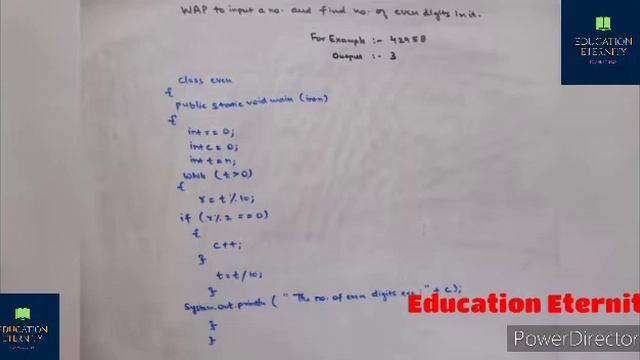 WAP to input a no. and find no. of even digits in it.
For Example :- 42958
Output :- 3
class even
{
public static void main (int n)
{
int r = 0;
int c = 0;
int t = n;
while (t > 0)
{
r = t % 10;
if (r % 2 == 0)
{
c++;
}
t = t / 10;
}
System.out.println ( " The no. of even digits are : " + c);
}
}
EDUCATION
ETERNITY
EDUCATION
ETERNITY
Education Eternit
PowerDirector